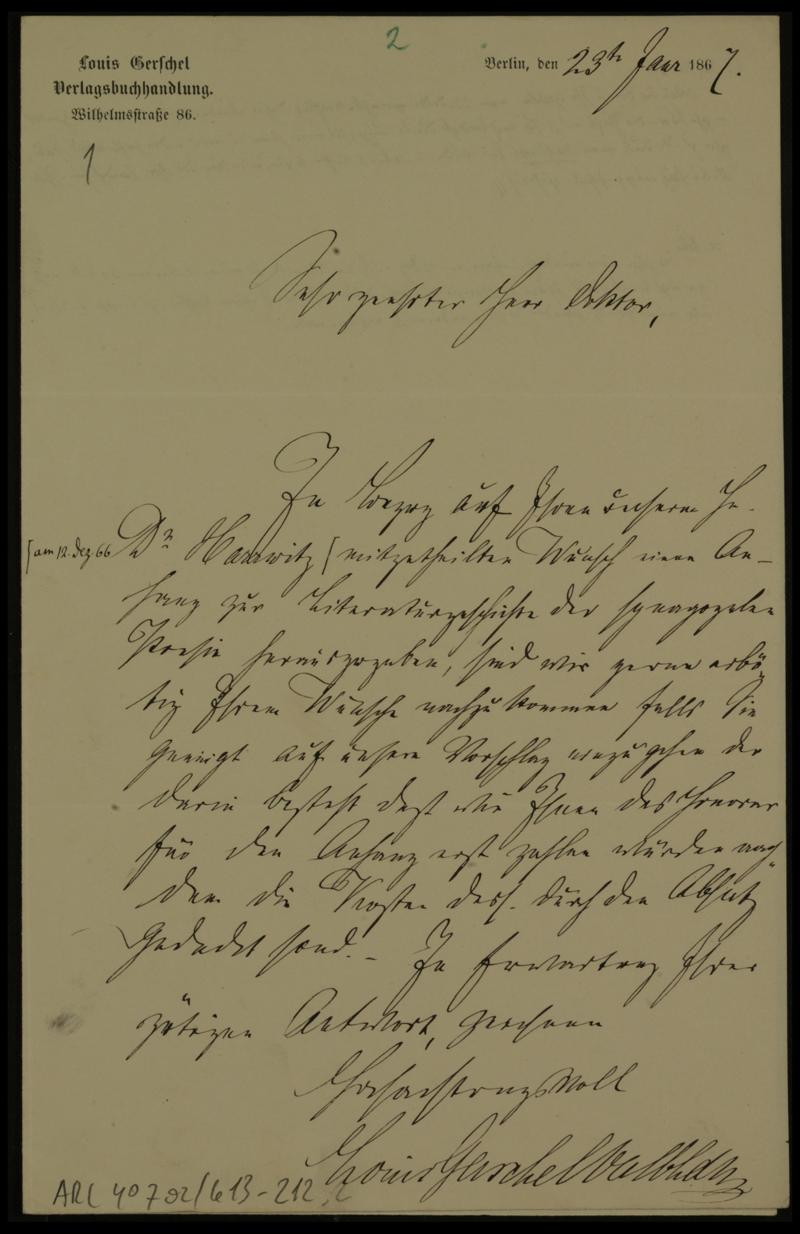 2
Louis Gerschel
Verlagsbuchhandlung.
Wilhelmsstraße 86.
Berlin, den 23th Jaar 1867.
1
Sehr geehrter Herr Doktor,
In Bezug auf Ihren unserm H.
[am 12. Dez. 66 Dr Horwitz [ mitgetheilten Wunsch einen An-
hang zur Literaturgeschichte der synagogalen
Poesie herauszugeben, sind wir gerne erbö-
tig Ihrem Wunsche nachzukommen falls Sie
geneigt auf unsern Vorschlag einzugehen der
darin besteht dass wir Ihnen das Honorar
für den Anhang erst zahlen würden nach-
dem die Kosten dess. durch den Absatz
gedeckt sind. - In Erwartung Ihrer
gütigen Antwort, zeichnen
Hochachtungsvoll
Louis Gerschel Valbhdlg
ARC 4° 792/G13-212